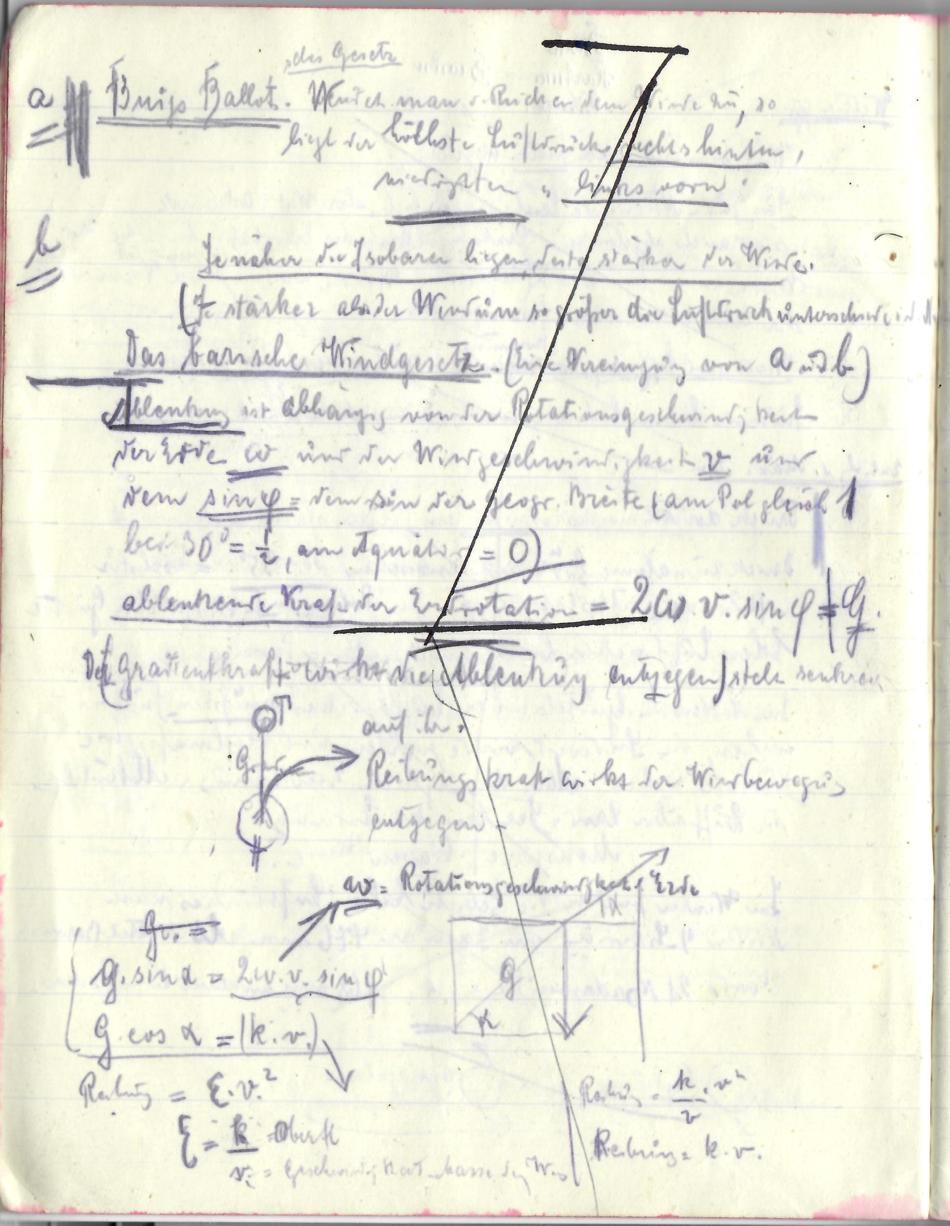 das Gesetz
a Buigs Ballot. Wendet man d. Rücken dem Winde zu, so
liegt der höchste Luftdruck rechts hinten,
niedrigsten " links vorn.
b
Je näher die Isobaren liegen, desto stärker der Wind.
stärker also der Wind um so größer die Luftdruckunterschiede
Das barische Windgesetz. (Eine Vereinigung von a und b)
Ablenkung ist abhängig von der Rotationsgeschwindigkeit
der Erde ω und der Windgeschwindigkeit v und
dem sin φ = dem sin der geogr. Breite (am Pol gleich 1
bei 30° = 1/2, am Äquator = 0)
ablenkende Kraft der Erdrotation = 2ω v. sin φ = G.
Der Gradientkraft wirkt die Ablenkung entgegen) steh senkrecht
auf ihr.
Grad
Reibungskraft wirkt der Windbewegung
entgegen
ω = Rotationsgeschwindigkeit d. Erde
α
G. sin α = 2ω. v. sin φ
G
G. cos α = (k. v.)
α
Reibung = ξ. v.²
Reibung = k/v . v²
ξ = k/v
Reibung = k. v.